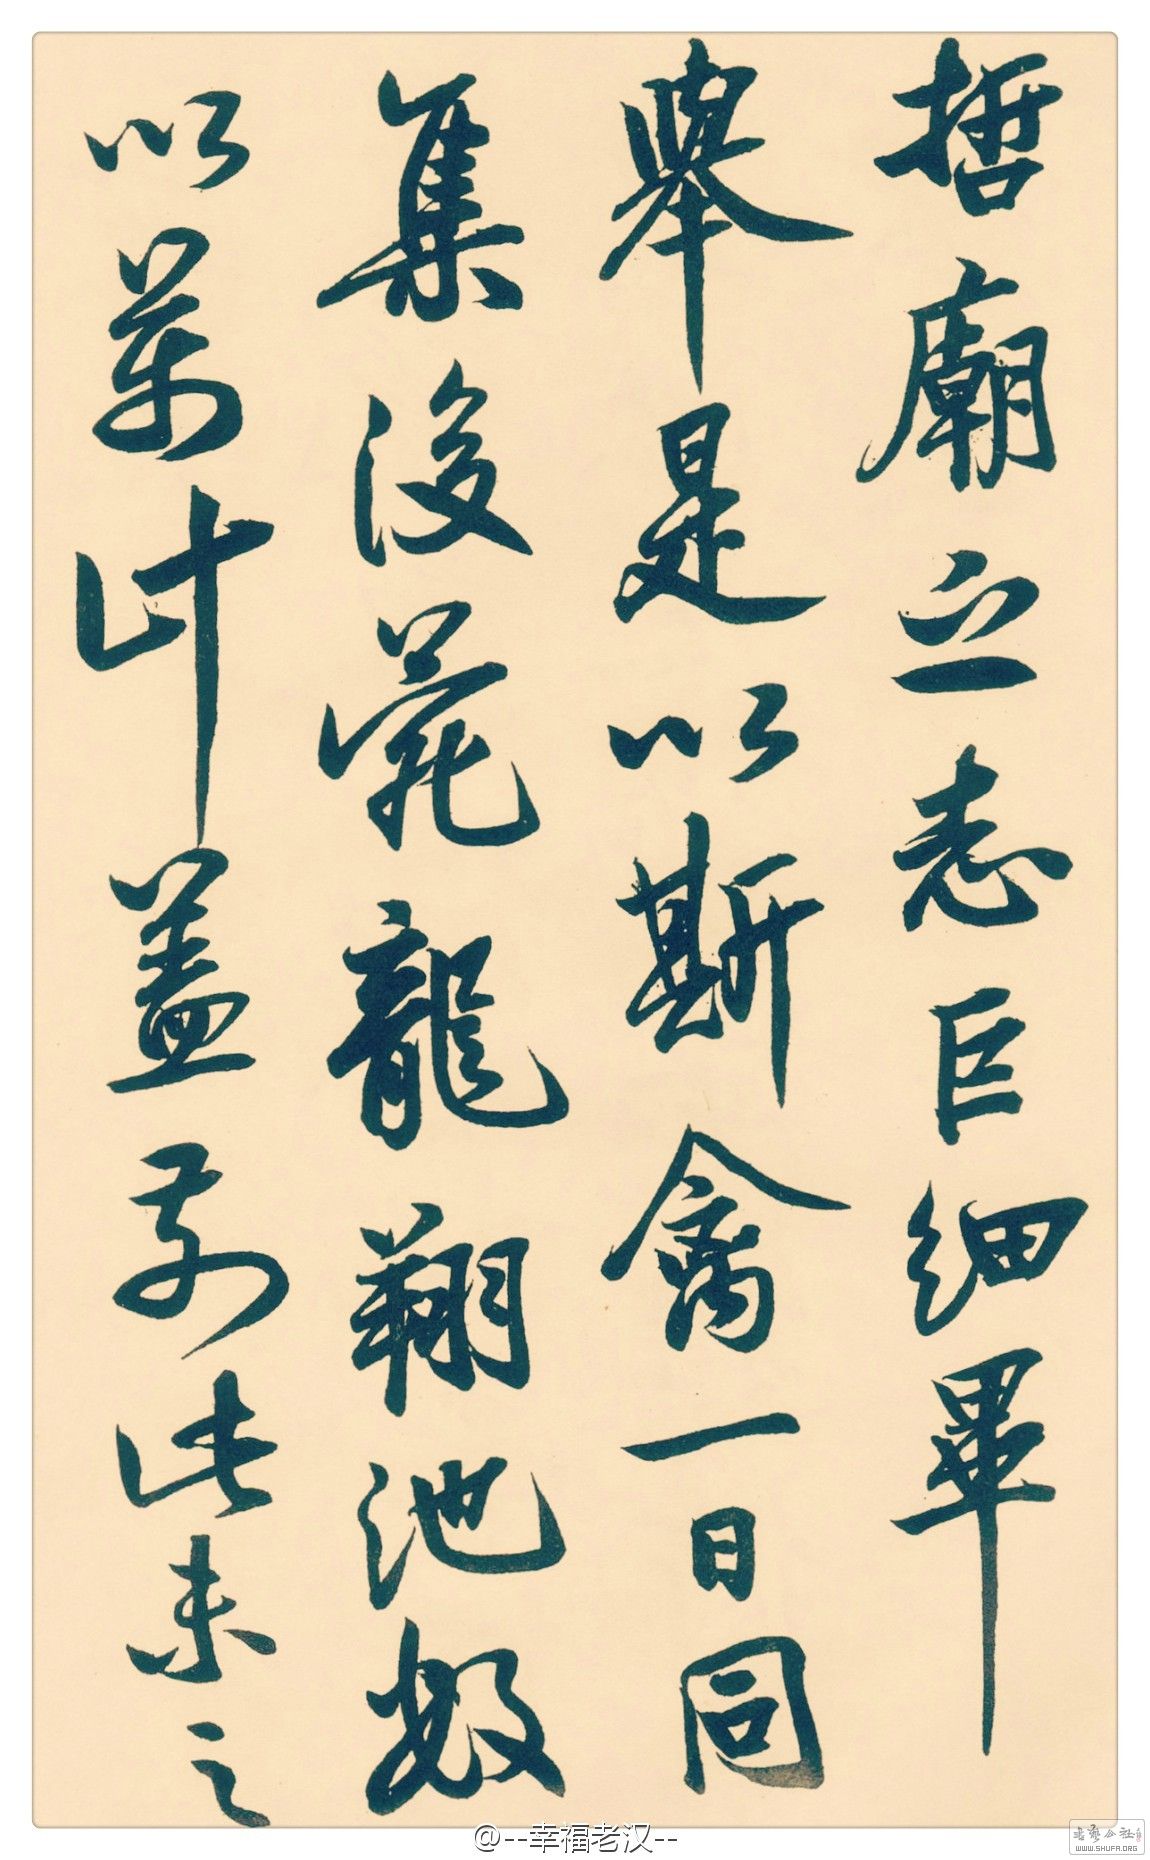 哲廟之志巨細畢
舉是以斯禽一日同
集後苑龍翔池數
以萬計蓋前此未之
@--幸福老汉--
书艺公社
WWW.SHUFA.ORG